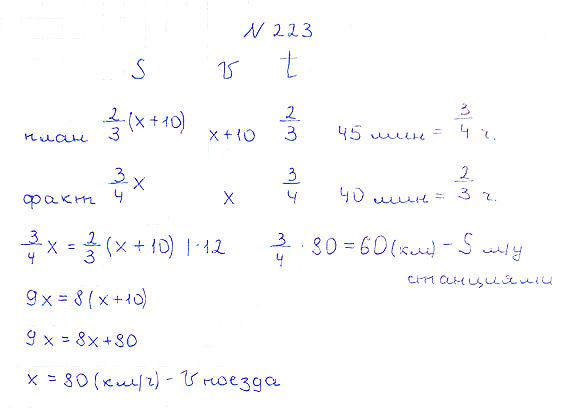 N 223
S v t
план 2/3 (x+10) x+10 2/3 45 мин = 3/4 ч.
факт 3/4 x x 3/4 40 мин = 2/3 ч.
3/4 x = 2/3 (x+10) | · 12 3/4 · 80 = 60 (км) – S м/у
станциями
9x = 8(x+10)
9x = 8x+80
x = 80 (км/ч) – v поезда